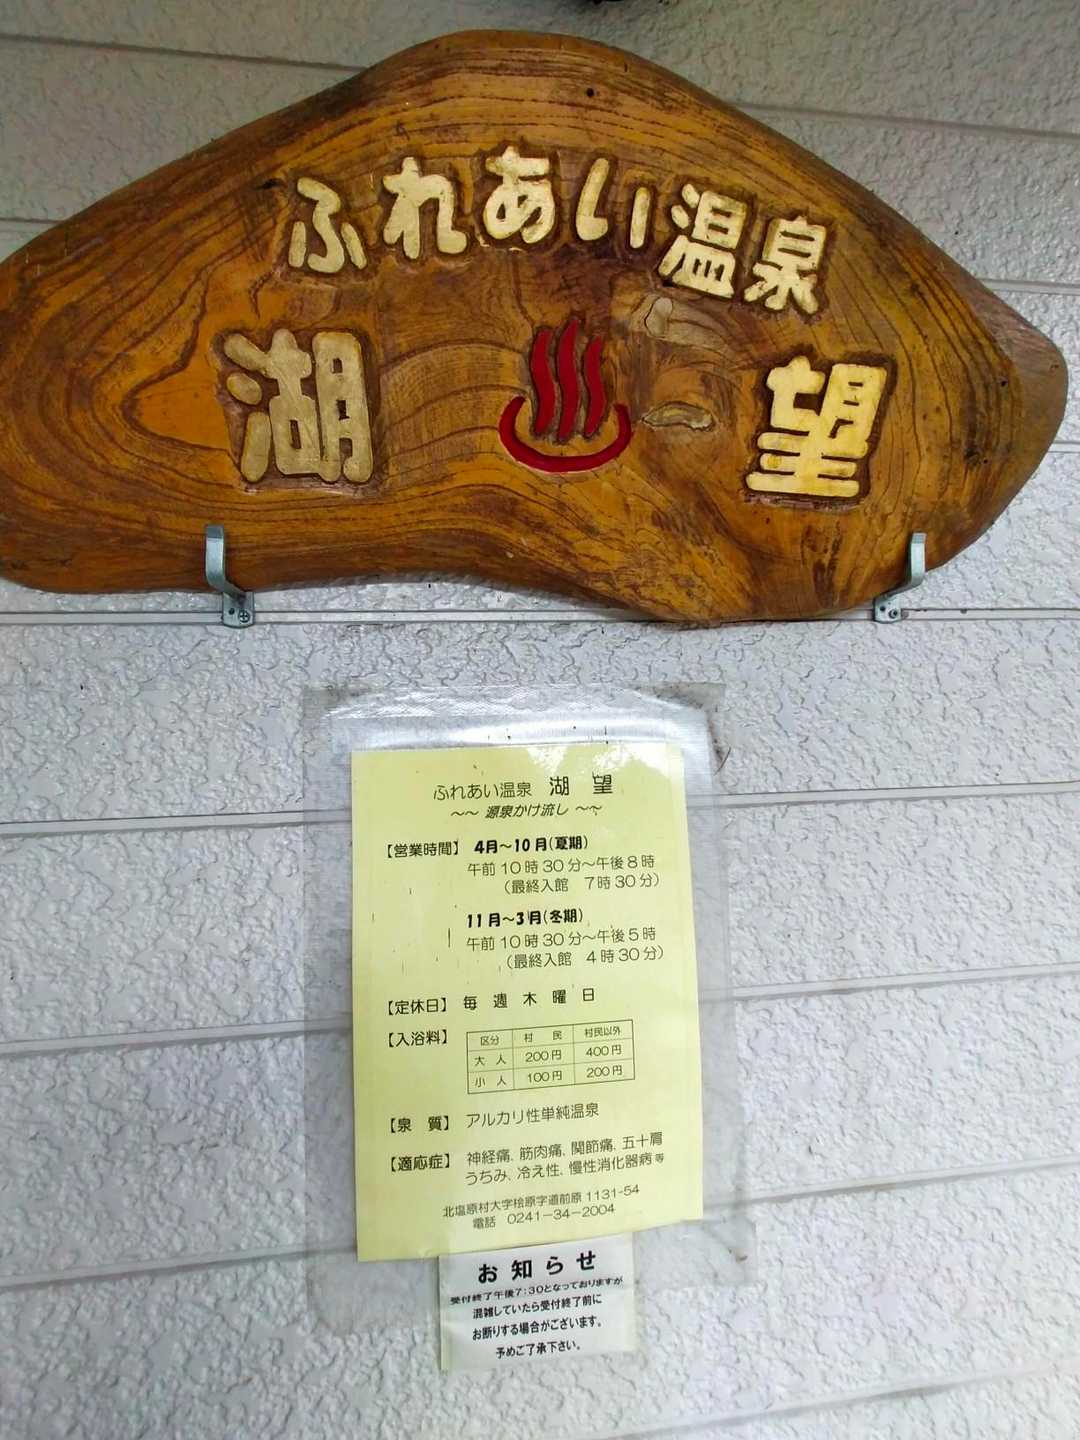 ふれあい温泉
湖 望
ふれあい温泉 湖 望
～～ 源泉かけ流し ～～
【営業時間】 4月～10月(夏期)
午前10時30分～午後8時
(最終入館 7時30分)
11月～3月(冬期)
午前10時30分～午後5時
(最終入館 4時30分)
【定休日】 毎 週 木 曜 日
【入浴料】
区分 村 民 村民以外
大 人 200円 400円
小 人 100円 200円
【泉 質】 アルカリ性単純温泉
【適応症】 神経痛、筋肉痛、関節痛、五十肩
うちみ、冷え性、慢性消化器病 等
北塩原村大字桧原字道前原1131-54
電話 0241－34－2004
お知らせ
受付終了午後7:30となっておりますが
混雑していたら受付終了前に
お断りする場合がございます。
予めご了承下さい。